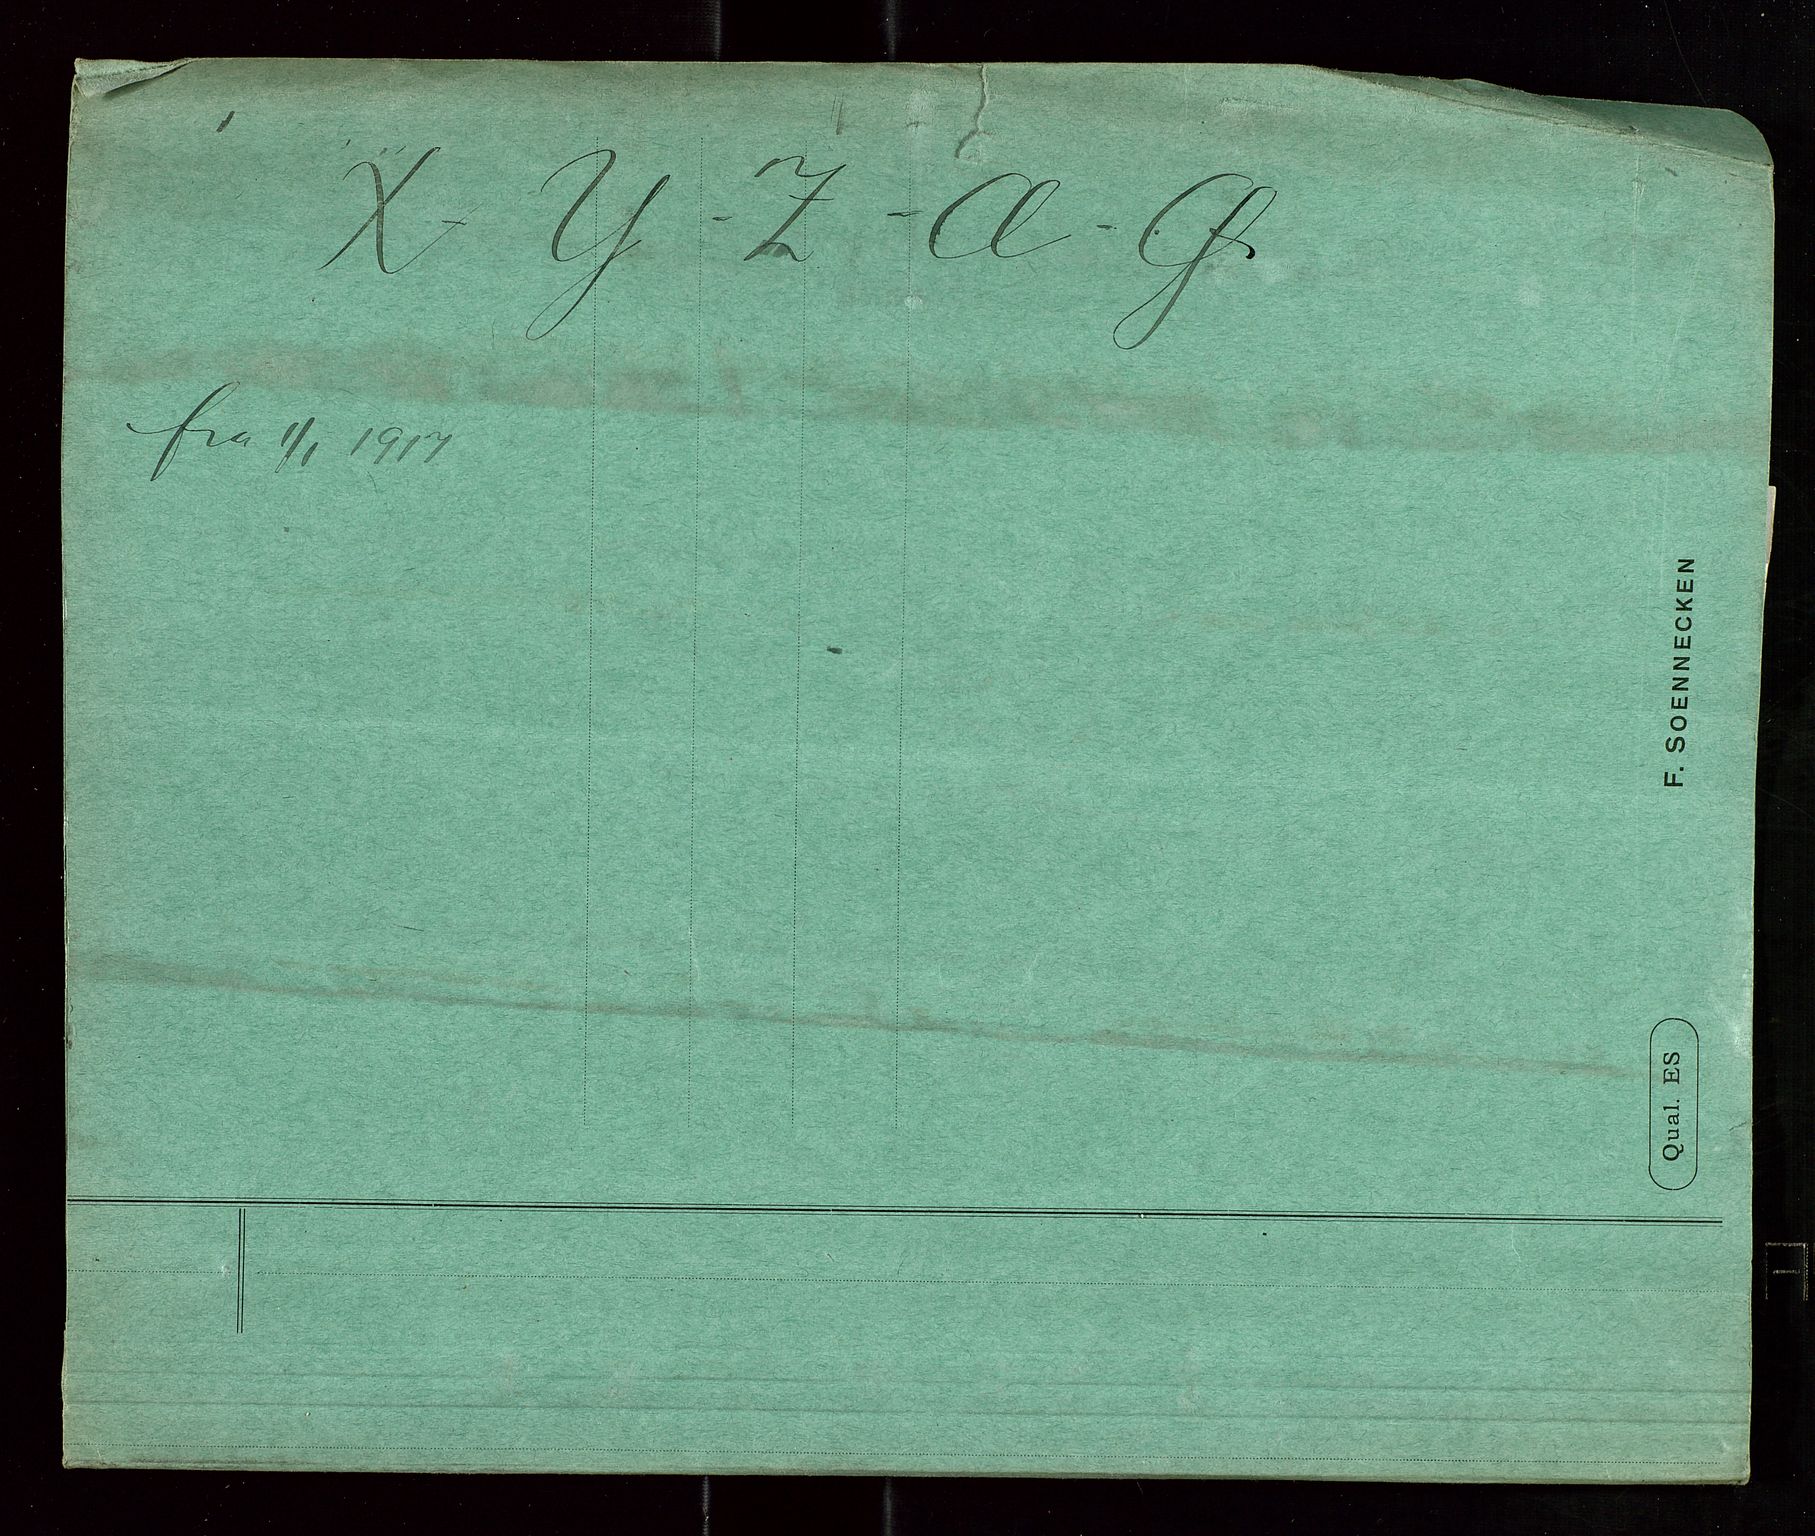 X - Y - Z - Æ - Ø
fra 1/1 1917
F. SOENNECKEN
Qual. ES